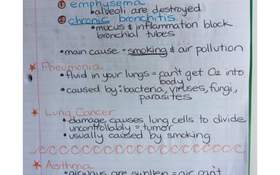 ① emphysema
•alveoli are destroyed
② chronic bronchitis
•mucus & inflammation block
bronchial tubes
•main cause = smoking & air pollution
★ Pneumonia
•fluid in your lungs = can't get O₂ into
body
•caused by: bacteria, viruses, fungi,
parasites
★ Lung Cancer
•damage causes lung cells to divide
uncontrollably = tumor
•usually caused by smoking
★ Asthma
•airways are swollen = air can't